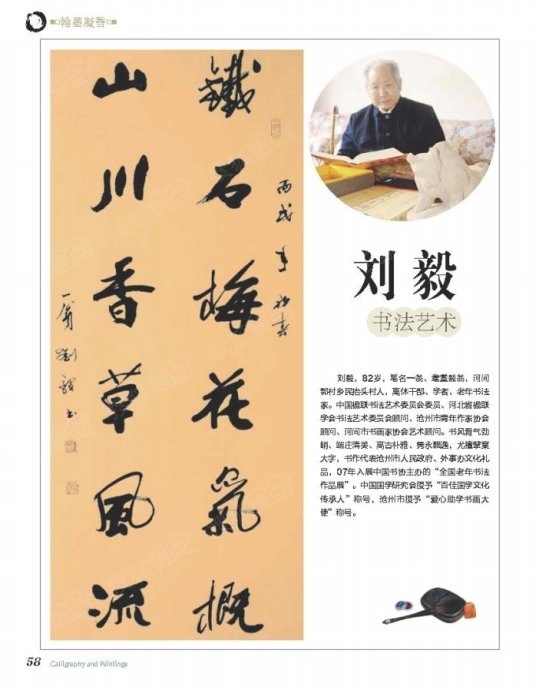 翰墨凝香
鐵石梅花氣概
丙戌年初春
山川香草風流
劉毅书
刘毅
书法艺术
刘毅，82岁，笔名一翁、耄耋毅翁，河间
郭村乡民抬头村人，离休干部、学者、老年书法
家。中国楹联书法艺术委员会委员、河北省楹联
学会书法艺术委员会顾问、沧州市青年作家协会
顾问、河间市书画家协会艺术顾问。书风骨气劲
峭、端庄清美、高古朴雅、隽永飘逸，尤擅擘窠
大字，书作代表沧州市人民政府、外事办文化礼
品，07年入展中国书协主办的“全国老年书法
作品展”。中国国学研究会授予“百佳国学文化
传承人”称号，沧州市授予“爱心助学书画大
使”称号。
58 Calligraphy and Paintings